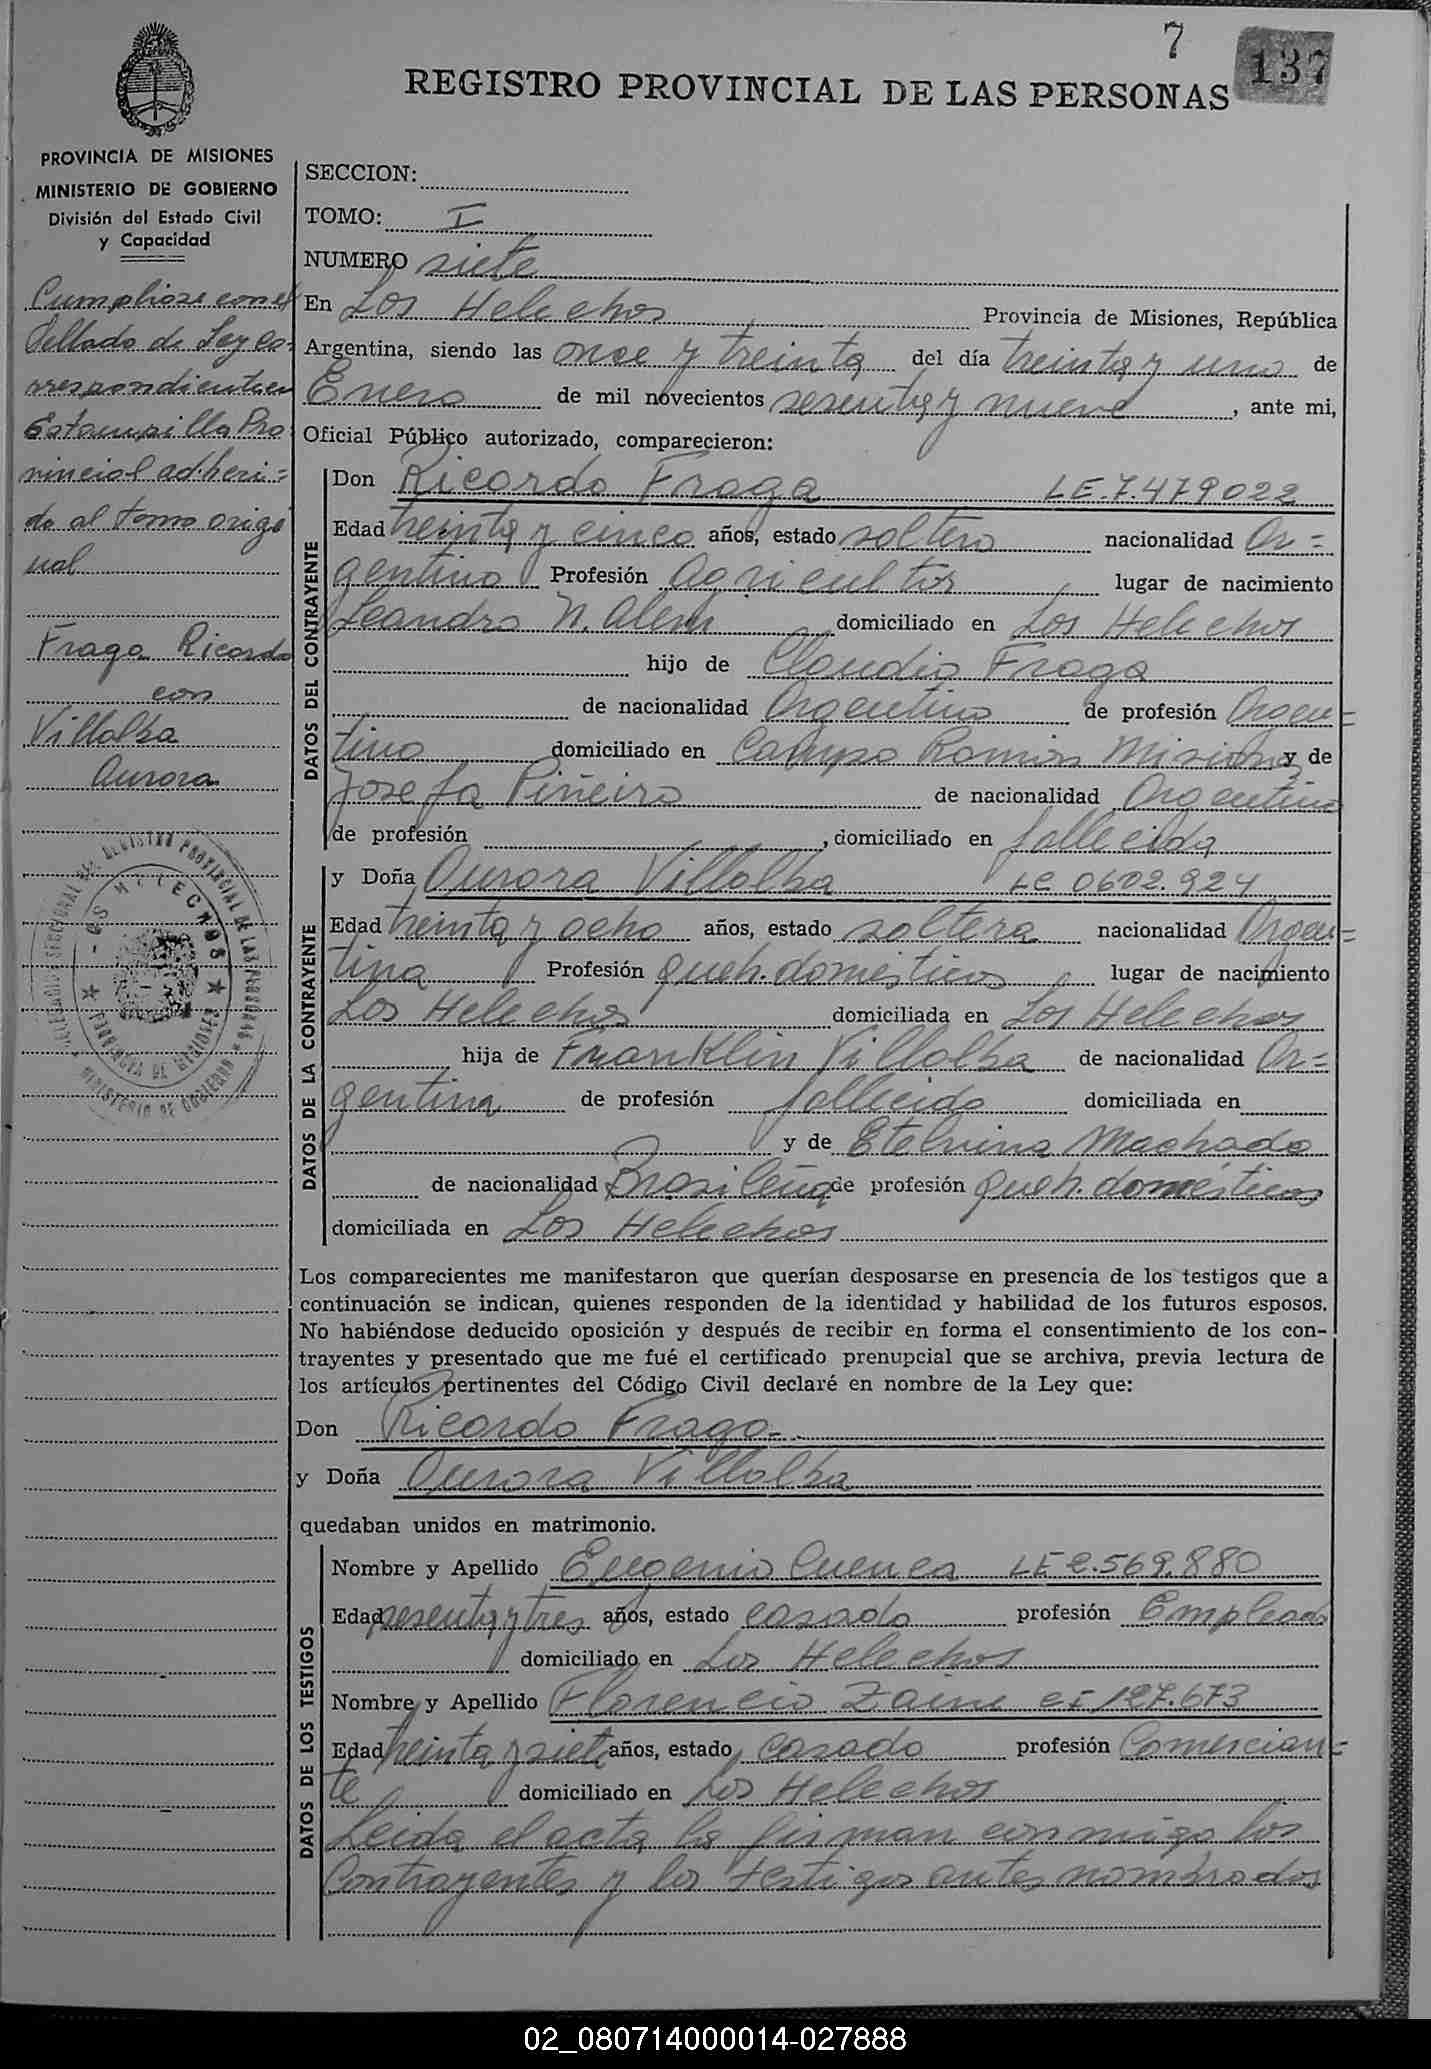 7
137
REGISTRO PROVINCIAL DE LAS PERSONAS
PROVINCIA DE MISIONES
MINISTERIO DE GOBIERNO
División del Estado Civil
y Capacidad
Cumpliose con el
Sellado de Ley co-
rrespondiente en
Estampilla Pro
vincial adheri=
do al tomo origi
nal
Fraga Ricardo
con
Villalba
Aurora
SECCION:
TOMO: I
NUMERO siete
En Los Helechos Provincia de Misiones, República
Argentina, siendo las once y treinta del día treinta y uno de
Enero de mil novecientos sesenta y nueve, ante mi,
Oficial Público autorizado, comparecieron:
DATOS DEL CONTRAYENTE
Don Ricardo Fraga LE.7.479022
Edad treinta y cinco años, estado soltero nacionalidad Ar=
gentino Profesión Agricultor lugar de nacimiento
Leandro N. Alem domiciliado en Los Helechos
hijo de Claudio Fraga
de nacionalidad Argentino de profesión Argen=
tino domiciliado en Campo Ramón Misiones y de
Josefa Piñeiro de nacionalidad Argentina
de profesión , domiciliado en fallecida
DATOS DE LA CONTRAYENTE
y Doña Aurora Villalba LC 0602.924
Edad treinta y ocho años, estado soltera nacionalidad Argen=
tina Profesión queh. domésticos lugar de nacimiento
Los Helechos domiciliada en Los Helechos
hija de Franklin Villalba de nacionalidad Ar=
gentina de profesión fallecido domiciliada en
y de Etelvina Machado
de nacionalidad Brasileña de profesión queh. domésticos
domiciliada en Los Helechos
Los comparecientes me manifestaron que querían desposarse en presencia de los testigos que a
continuación se indican, quienes responden de la identidad y habilidad de los futuros esposos.
No habiéndose deducido oposición y después de recibir en forma el consentimiento de los con-
trayentes y presentado que me fué el certificado prenupcial que se archiva, previa lectura de
los artículos pertinentes del Código Civil declaré en nombre de la Ley que:
Don Ricardo Fraga
y Doña Aurora Villalba
quedaban unidos en matrimonio.
DATOS DE LOS TESTIGOS
Nombre y Apellido Eugenio Cuenca LE 2.569.880
Edad sesenta y tres años, estado casado profesión Empleado
domiciliado en Los Helechos
Nombre y Apellido Florencio CI 127.673
Edad treinta y siete años, estado casado profesión Comercian=
te domiciliado en Los Helechos
Leida el acta la firman conmigo los
Contrayentes y los testigos antes nombrados
02_080714000014-027888